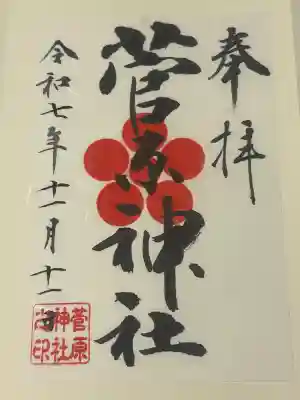 奉拝
菅原神社
令和七年十一月十一日
菅原
神社
之印